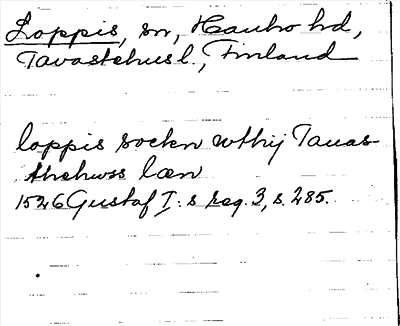 Loppis, sn, Hauho hd,
Tavastehus l., Finland
loppis sockn wthij Tauas-
thehwss læn
1526 Gustaf I: s reg. 3, s. 285.